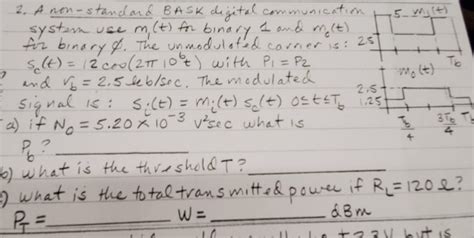 2. A non-standard BASK digital communication
system use m₁(t) for binary 1 and m₀(t)
for binary 0. The unmodulated carrier is:
s_c(t) = 12 cos(2π 10⁶t) with P1 = P2
and r_b = 2.5 kb/sec. The modulated
signal is: s_i(t) = m_i(t) s_c(t) 0≤t≤T_b
a) if N₀ = 5.20 × 10⁻³ V²sec what is
P_b? ________
b) what is the threshold T? ________
c) what is the total transmitted power if R_L = 120 Ω?
P_T = ________ W = ________ dBm
5 m₁(t)
2.5
T_b
m₀(t)
2.5
1.25
T_b/4 3T_b/4 T_b